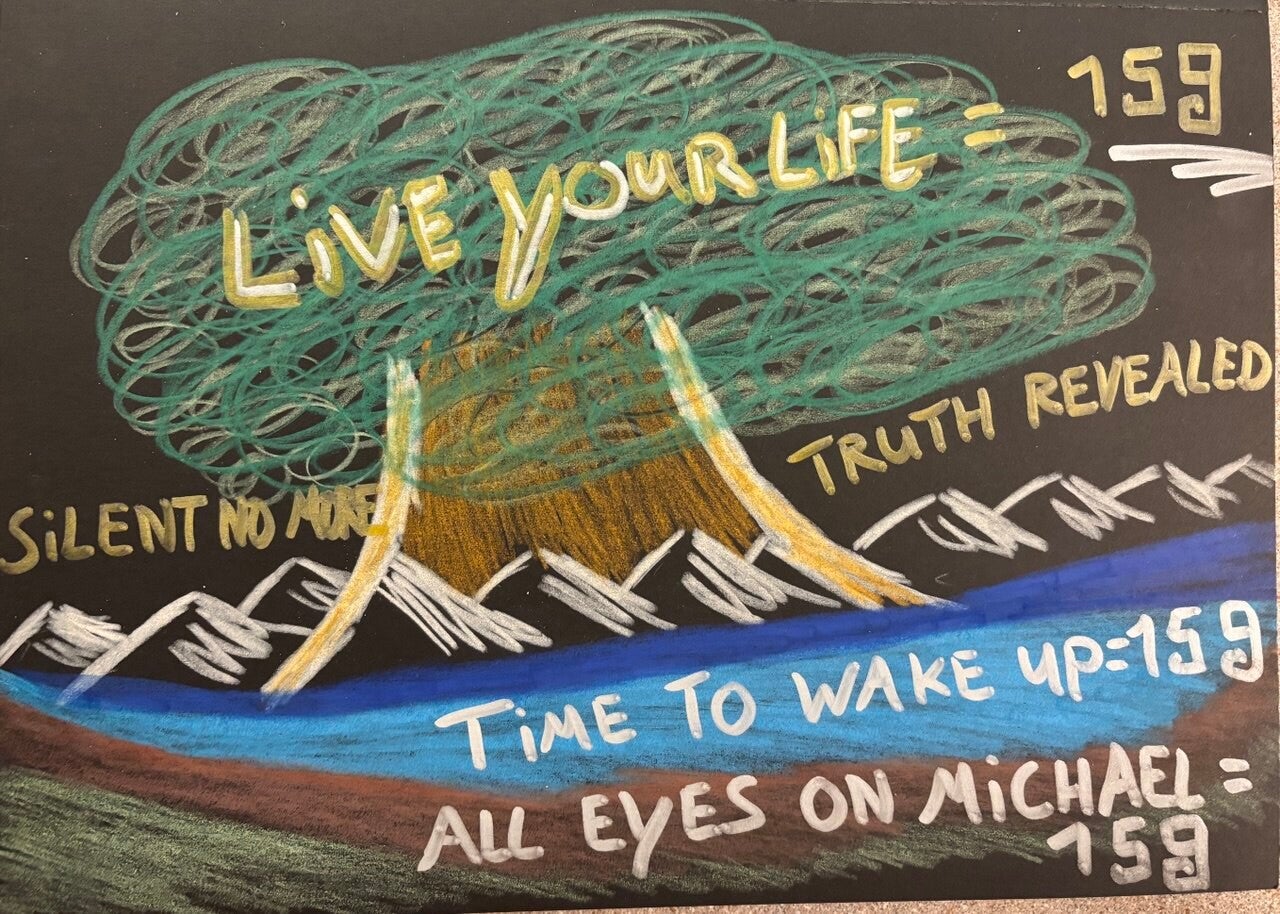 LiVE YOUR LiFE = 159
TRUTH REVEALED
SiLENT NO MORE
TiME TO WAKE UP=159
ALL EYES ON MiCHAEL =
159